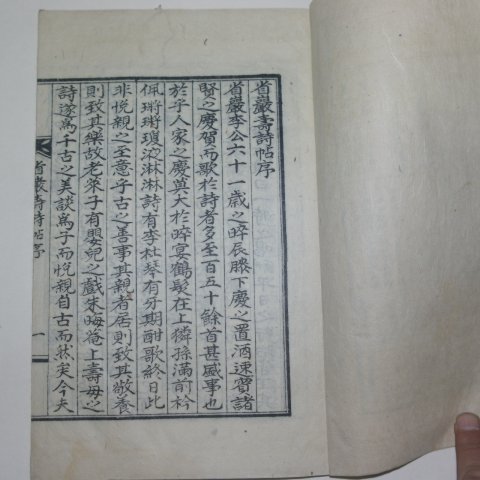 省巖壽詩帖序
省巖李公六十一歲之晬辰膝下慶之置酒速賓諸
賢之慶賀而歌於詩者多至百五十餘首甚盛事也
於乎人家之慶莫大於晬宴鶴髮在上獜孫滿前衿
佩瑲瑲瓊液淋淋詩有李杜琴有牙期酣歌終日此
非悅親之至意乎古之善事其親者居則致其敬養
則致其樂故老萊子有嬰兒之戲朱晦菴上壽母之
詩遂爲千古之美談爲子而悅親自古而然矣今夫
省巖壽詩帖序
一